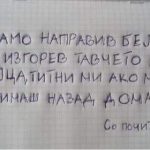 АМО НАПРАВИВ БЕЛ
ИЗГОРЕВ ТАВЧЕТО
ТИТНИ МИ АКО М
ИМАШ НАЗАД ДОМА
Со почит